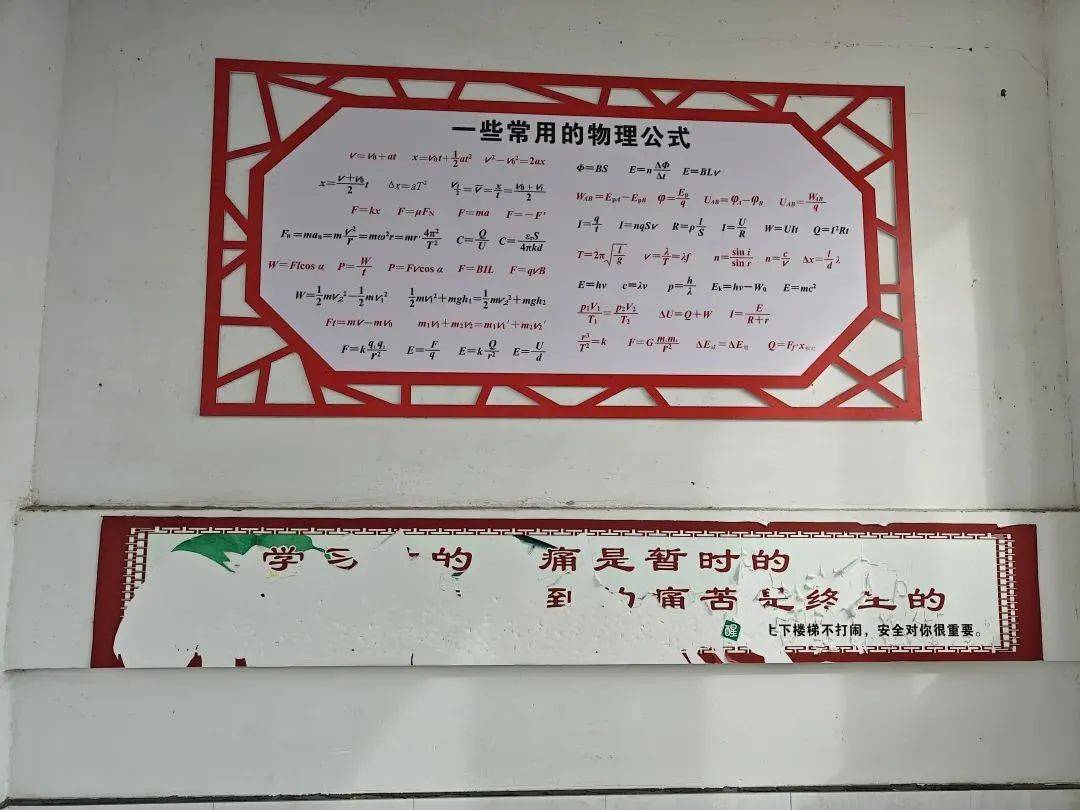 一些常用的物理公式
v=v₀+at x=v₀t+1/2at² v²-v₀²=2ax
x=(v+v₀)/2 t Δx=aT² v_(t/2)=v̄=x/t=(v₀+v_t)/2
F=kx F=μF_N F=ma F=-F'
F_n=ma_n=m v²/r=mω²r=mr·4π²/T² C=Q/U C=ε_rS/4πkd
W=Flcos α P=W/t P=Fvcos α F=BIL F=qvB
W=1/2mv₂²-1/2mv₁² 1/2mv₁²+mgh₁=1/2mv₂²+mgh₂
Ft=mv-mv₀ m₁v₁+m₂v₂=m₁v₁'+m₂v₂'
F=k q₁q₂/r² E=F/q E=k Q/r² E=U/d
Φ=BS E=n ΔΦ/Δt E=BLv
W_AB=E_pA-E_pB φ=E_p/q U_AB=φ_A-φ_B U_AB=W_AB/q
I=q/t I=nqSv R=ρ l/S I=U/R W=UIt Q=I²Rt
T=2π√(l/g) v=λ/T=λf n=sin i/sin r n=c/v Δx=l/d λ
E=hν c=λν p=h/λ E_k=hν-W₀ E=mc²
p₁V₁/T₁=p₂V₂/T₂ ΔU=Q+W I=E/(R+r)
r³/T²=k F=G m₁m₂/r² ΔE减=ΔE增 Q=F_f·x相对
学习 的 痛是暂时的
到 的痛苦是终生的
醒 上下楼梯不打闹，安全对你很重要。